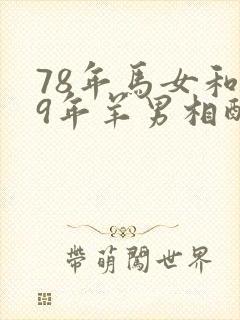 78年馬女和
9年羊男相配
帶萌闖世界